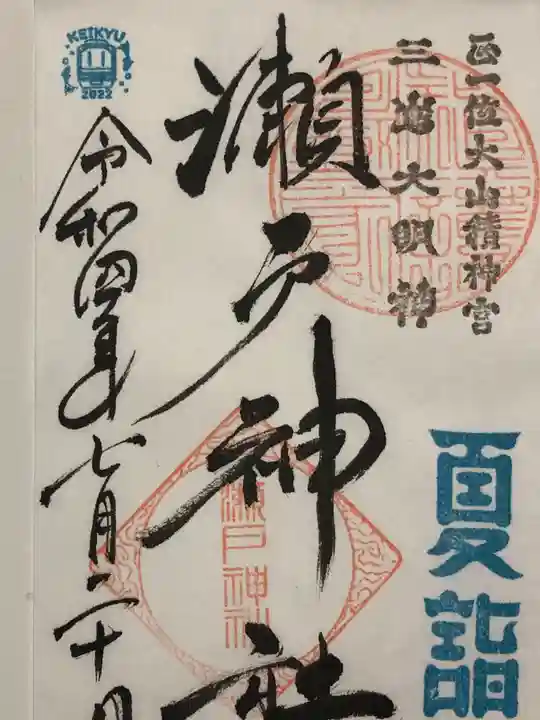 正一位大山積神宮
三嶌大明神
夏詣
瀬戸神社
瀬戸神社
令和四年七月二十日
KEIKYU
2022